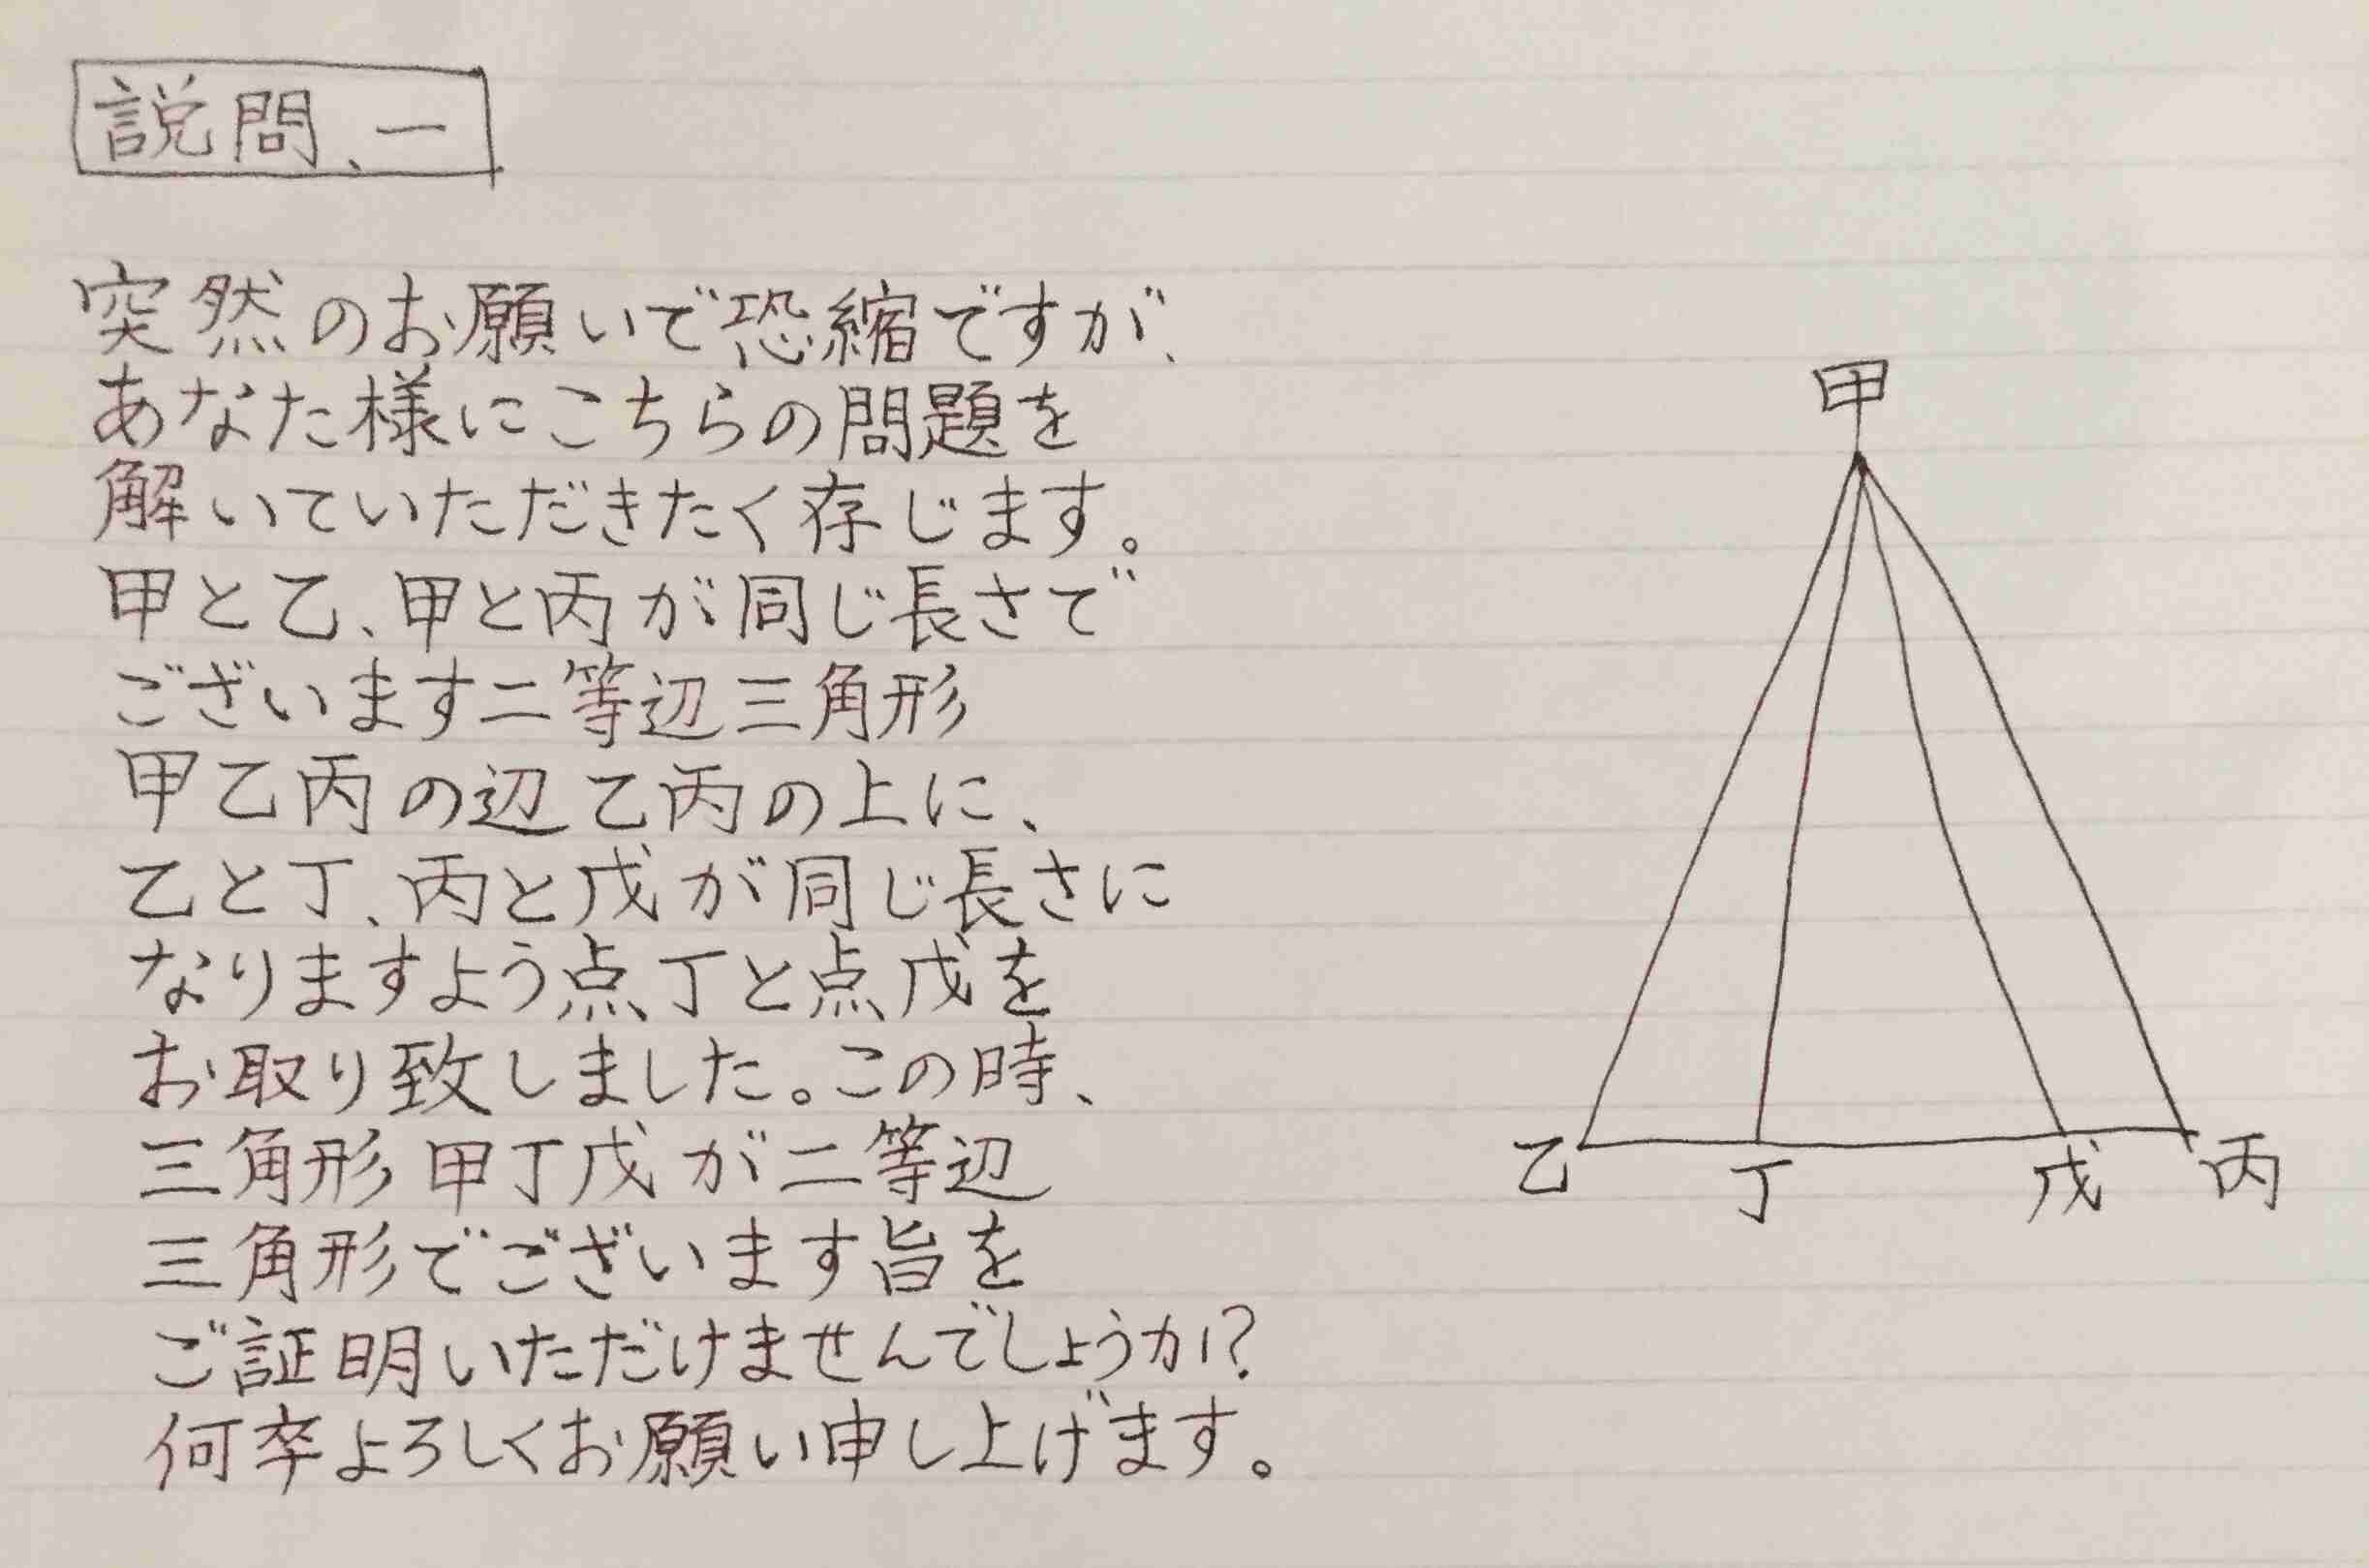 説問、一
突然のお願いで恐縮ですが、
あなた様にこちらの問題を
解いていただきたく存じます。
甲と乙、甲と丙が同じ長さで
ございます二等辺三角形
甲乙丙の辺乙丙の上に、
乙と丁、丙と戊が同じ長さに
なりますよう点丁と点戊を
お取り致しました。この時、
三角形甲丁戊が二等辺
三角形でございます旨を
ご証明いただけませんでしょうか?
何卒よろしくお願い申し上げます。
甲
乙
丁
戊
丙